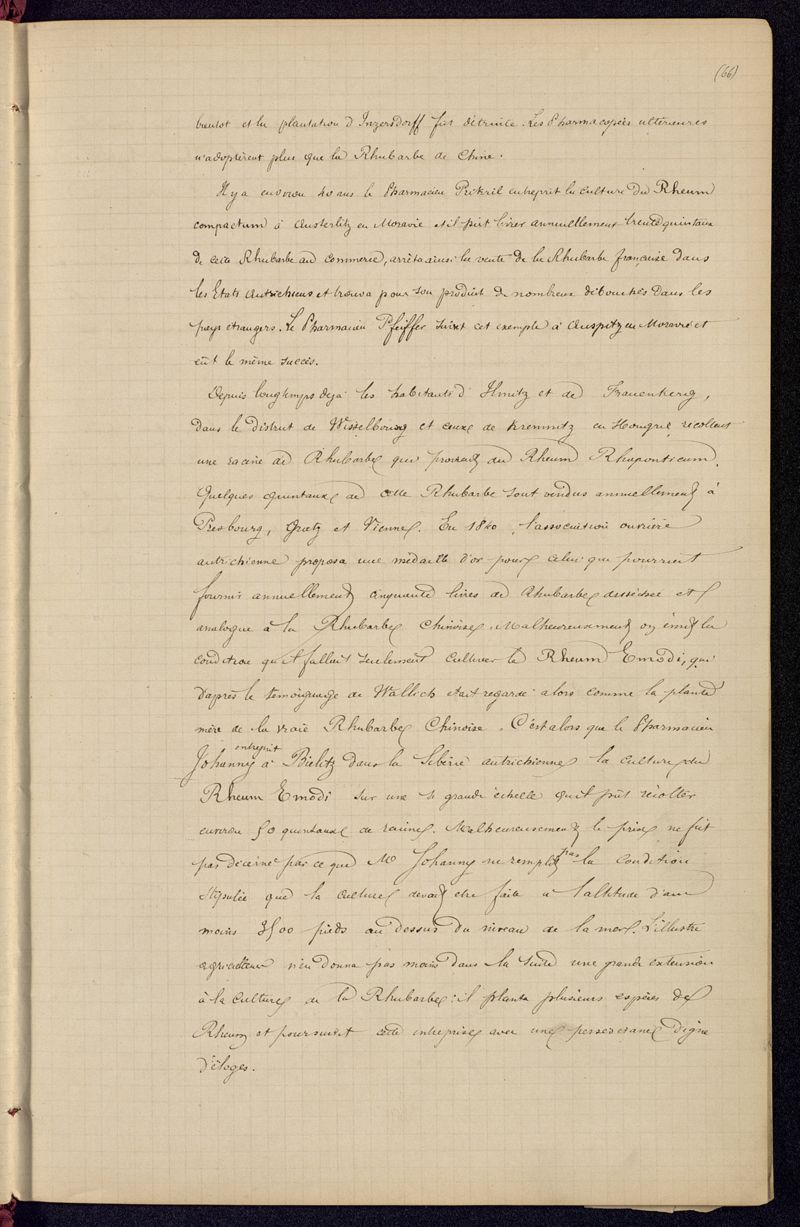 (66)
bientot et la plantation d'Inzersdorff fut détruite. Les Pharmacopées ultérieures
n'adoptèrent plus que la Rhubarbe de Chine.
Il y a environ 40 ans le Pharmacien Prikril entreprit la culture du Rheum
compactum à Austerlitz en Moravie et il put livrer annuellement trente quintaux
de cette Rhubarbe au commerce, arrêta ainsi la vente de la Rhubarbe française dans
les Etats Autrichiens et trouva pour son produit de nombreux débouchés dans les
pays étrangers. Le Pharmacien Pfeiffer suivit cet exemple à Auspitz en Moravie et
eût le même succès.
Depuis longtemps deja les habitants d'Ilmitz et de Frauenkerg,
dans le district de Wisselbourg et ceux de Kremnitz en Hongrie, recoltent
une racine de Rhubarbe qui provient du Rheum Rhaponticum.
Quelques quintaux de cette Rhubarbe sont vendus annuellement à
Presbourg, Gratz et Vienne. En 1840, l'association ouvrière
autrichienne proposa une médaille d'or pour celui qui pourrait
fournir annuellement cinquante livres de Rhubarbe desséchée et
analogue à la Rhubarbe Chinoise. Malheureusement on émit la
condition qu'il fallait seulement cultiver le Rheum Emodi, qui
d'après le témoignage de Wallich était regardé alors comme la plante
mère de la vraie Rhubarbe Chinoise. C'est alors que le Pharmacien
Johanny entreprit à Bielitz dans la Sibérie autrichienne la culture du
Rheum Emodi sur une si grande échelle qu'il pût récolter
environ 50 quintaux de racines. Malheureusement le prix ne fut
pas décerné par ce que Mr Johanny ne remplit pas la condition
stipulée que la culture devait être faite à l'altitude d'au
moins 3500 pieds au dessus du niveau de la mer. L'illustre
n'en donna pas moins dans la suite une grande extension
à la culture de la Rhubarbe: il planta plusieurs espèces de
Rheum et poursuivit cette entreprise avec une perseverance digne
d'éloges.